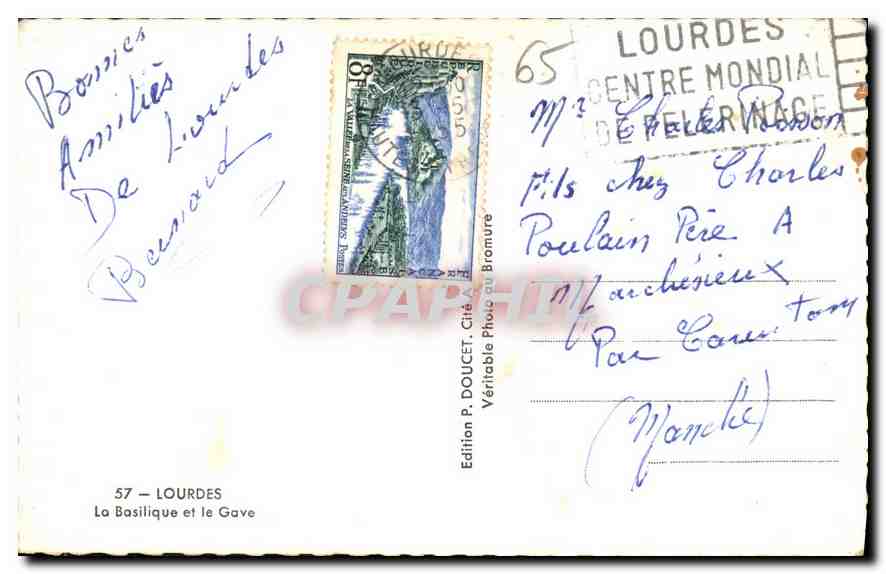 Bonnes
Amitiés
De Lourdes
Bernard
8F
LA VALLÉE DE LA SEINE AUX ANDELYS POSTES
65
LOURDES
CENTRE MONDIAL
DE PELERINAGE
Mr Charles
Fils chez Charles
Poulain Père A
Marchésieux
Par Carentom
(Manche)
Edition P. DOUCET. Cité A
Véritable Photo au Bromure
CPAPHIL
57 – LOURDES
La Basilique et le Gave